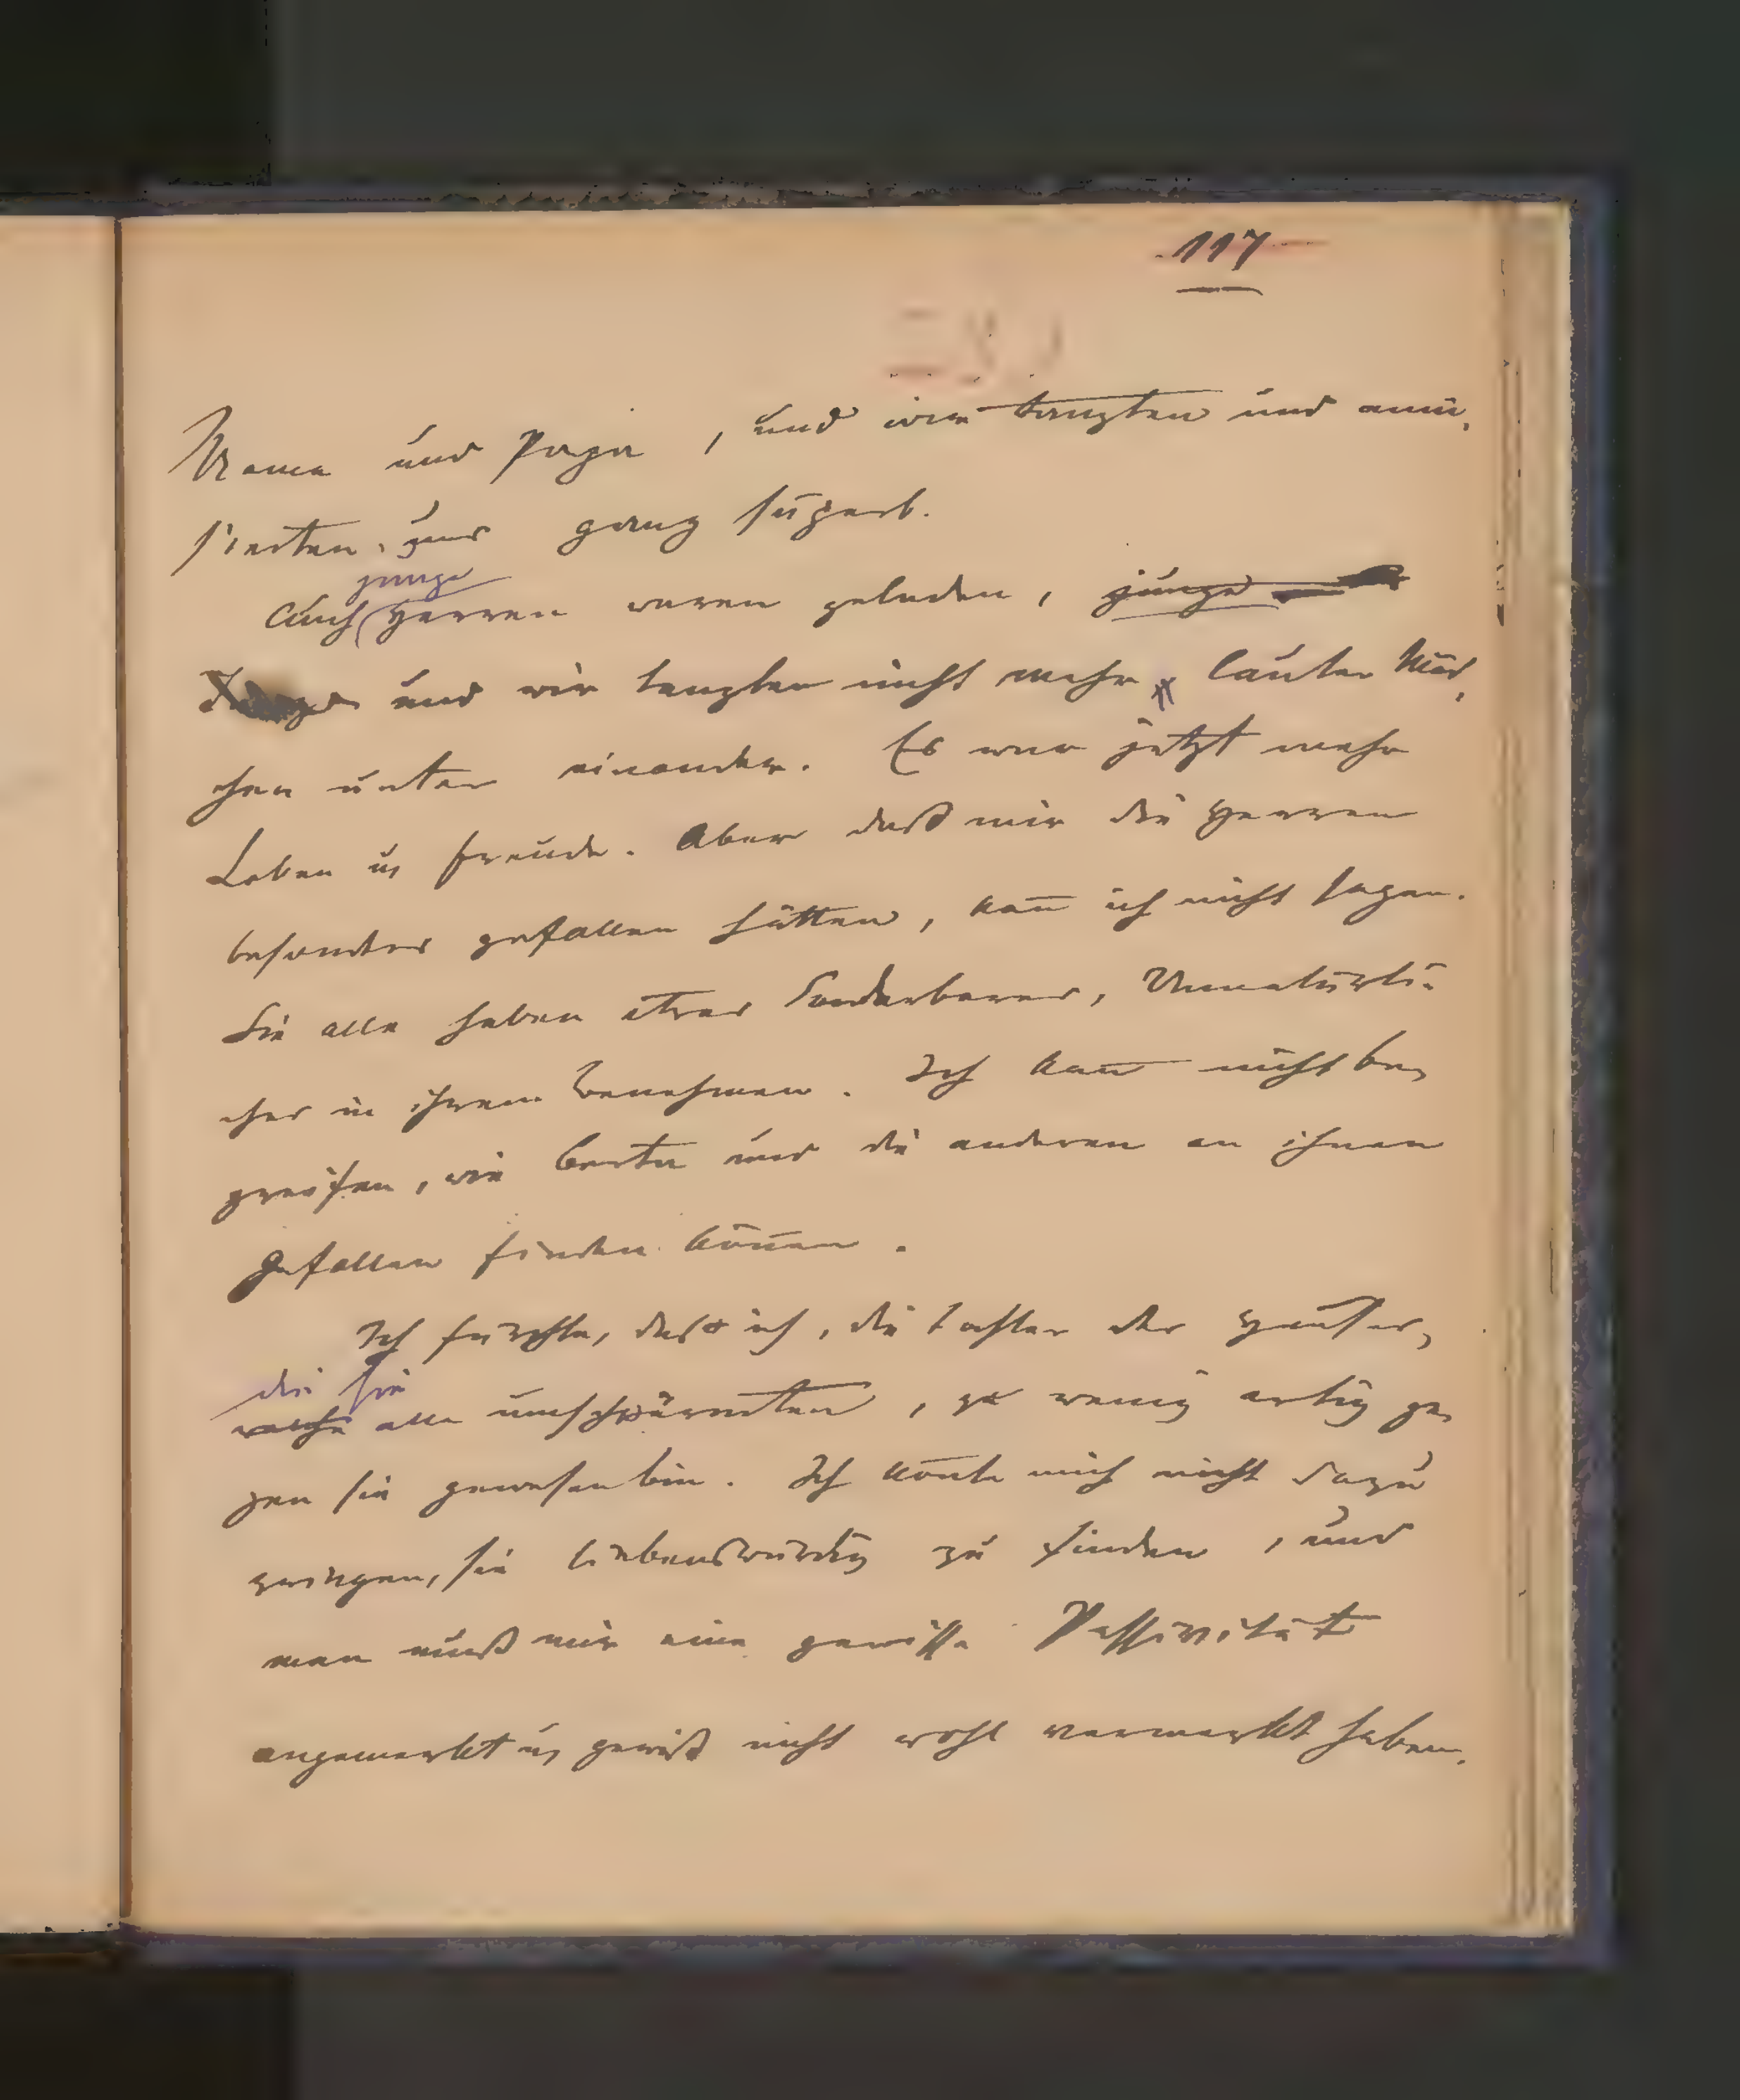 117
Mama und Papa, und wir tanzten und amü-
sierten uns ganz süperb.
junge
Auch Herren waren geladen, junge
und wir tanzten nicht mehr lauter Mäd-
chen unter einander. Es war jetzt mehr
Leben u. Freude. Aber daß mir die Herren
besonders gefallen hätten, kan̄ ich nicht sagen.
Sie alle haben etwas Sonderbares, Unnatürli-
ches in ihrem Benehmen. Ich kan̄ nicht be-
greifen, wie Berta und die anderen an ihnen
Gefallen finden kön̄en.
Ich fürchte, dass ich, die Tochter des Hauses,
die sie
welche alle umschwärmten, zu wenig artig ge-
gen sie gewesen bin. Ich kon̄te mich nicht dazu
zwingen, sie liebenswürdig zu finden, und
man muß mir eine gewisse Passivität
angemerkt u. gewiß nicht wohl vermerkt haben.